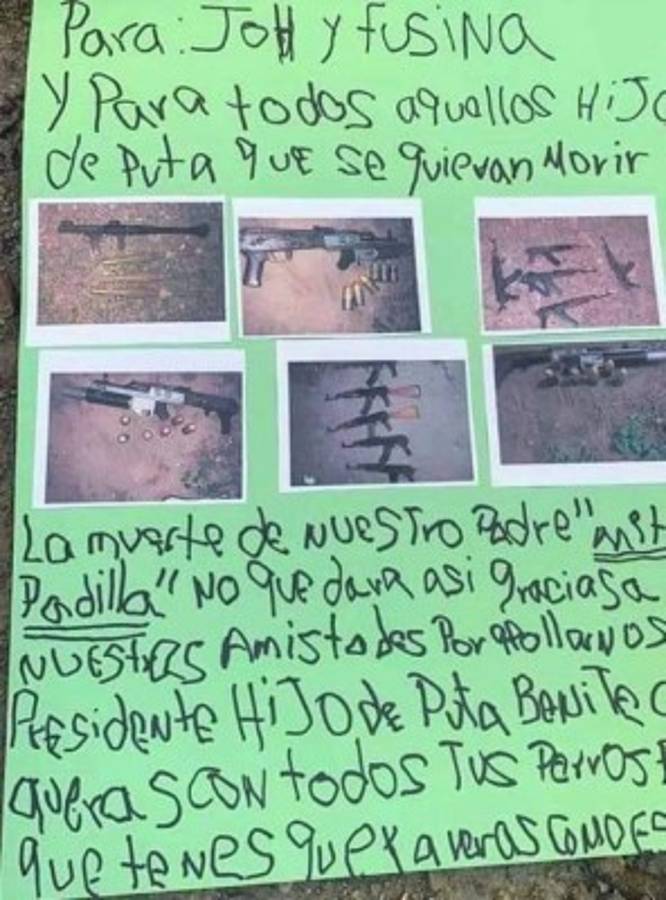 Para: JOH y fusiNA
y Para todos aquellos HiJO
de PutA QUE se quieran Morir
La muerte de NUESTro Padre "mit
Padilla" NO QUE dara asi graciasa
NUEStras Amistades Por apollarNOS
PresideNte HiJO de Puta BeNiTe
queras CON todos Tus Perros
que teNES que ya veras COMO ES